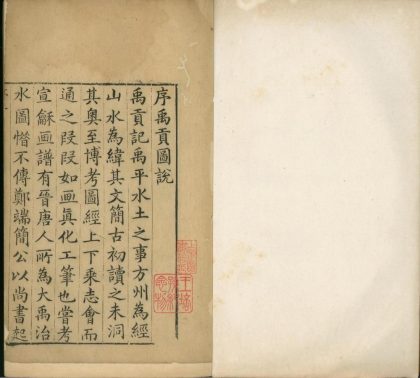 序禹貢圖說
禹貢記禹平水土之事方州為經
山水為緯其文簡古初讀之未洞
其奧至博考圖經上下乘志會而
通之段段如畫真化工筆也嘗考
宣龢画譜有晉唐人所為大禹治
水圖惜不傳鄭端簡公以尚書起